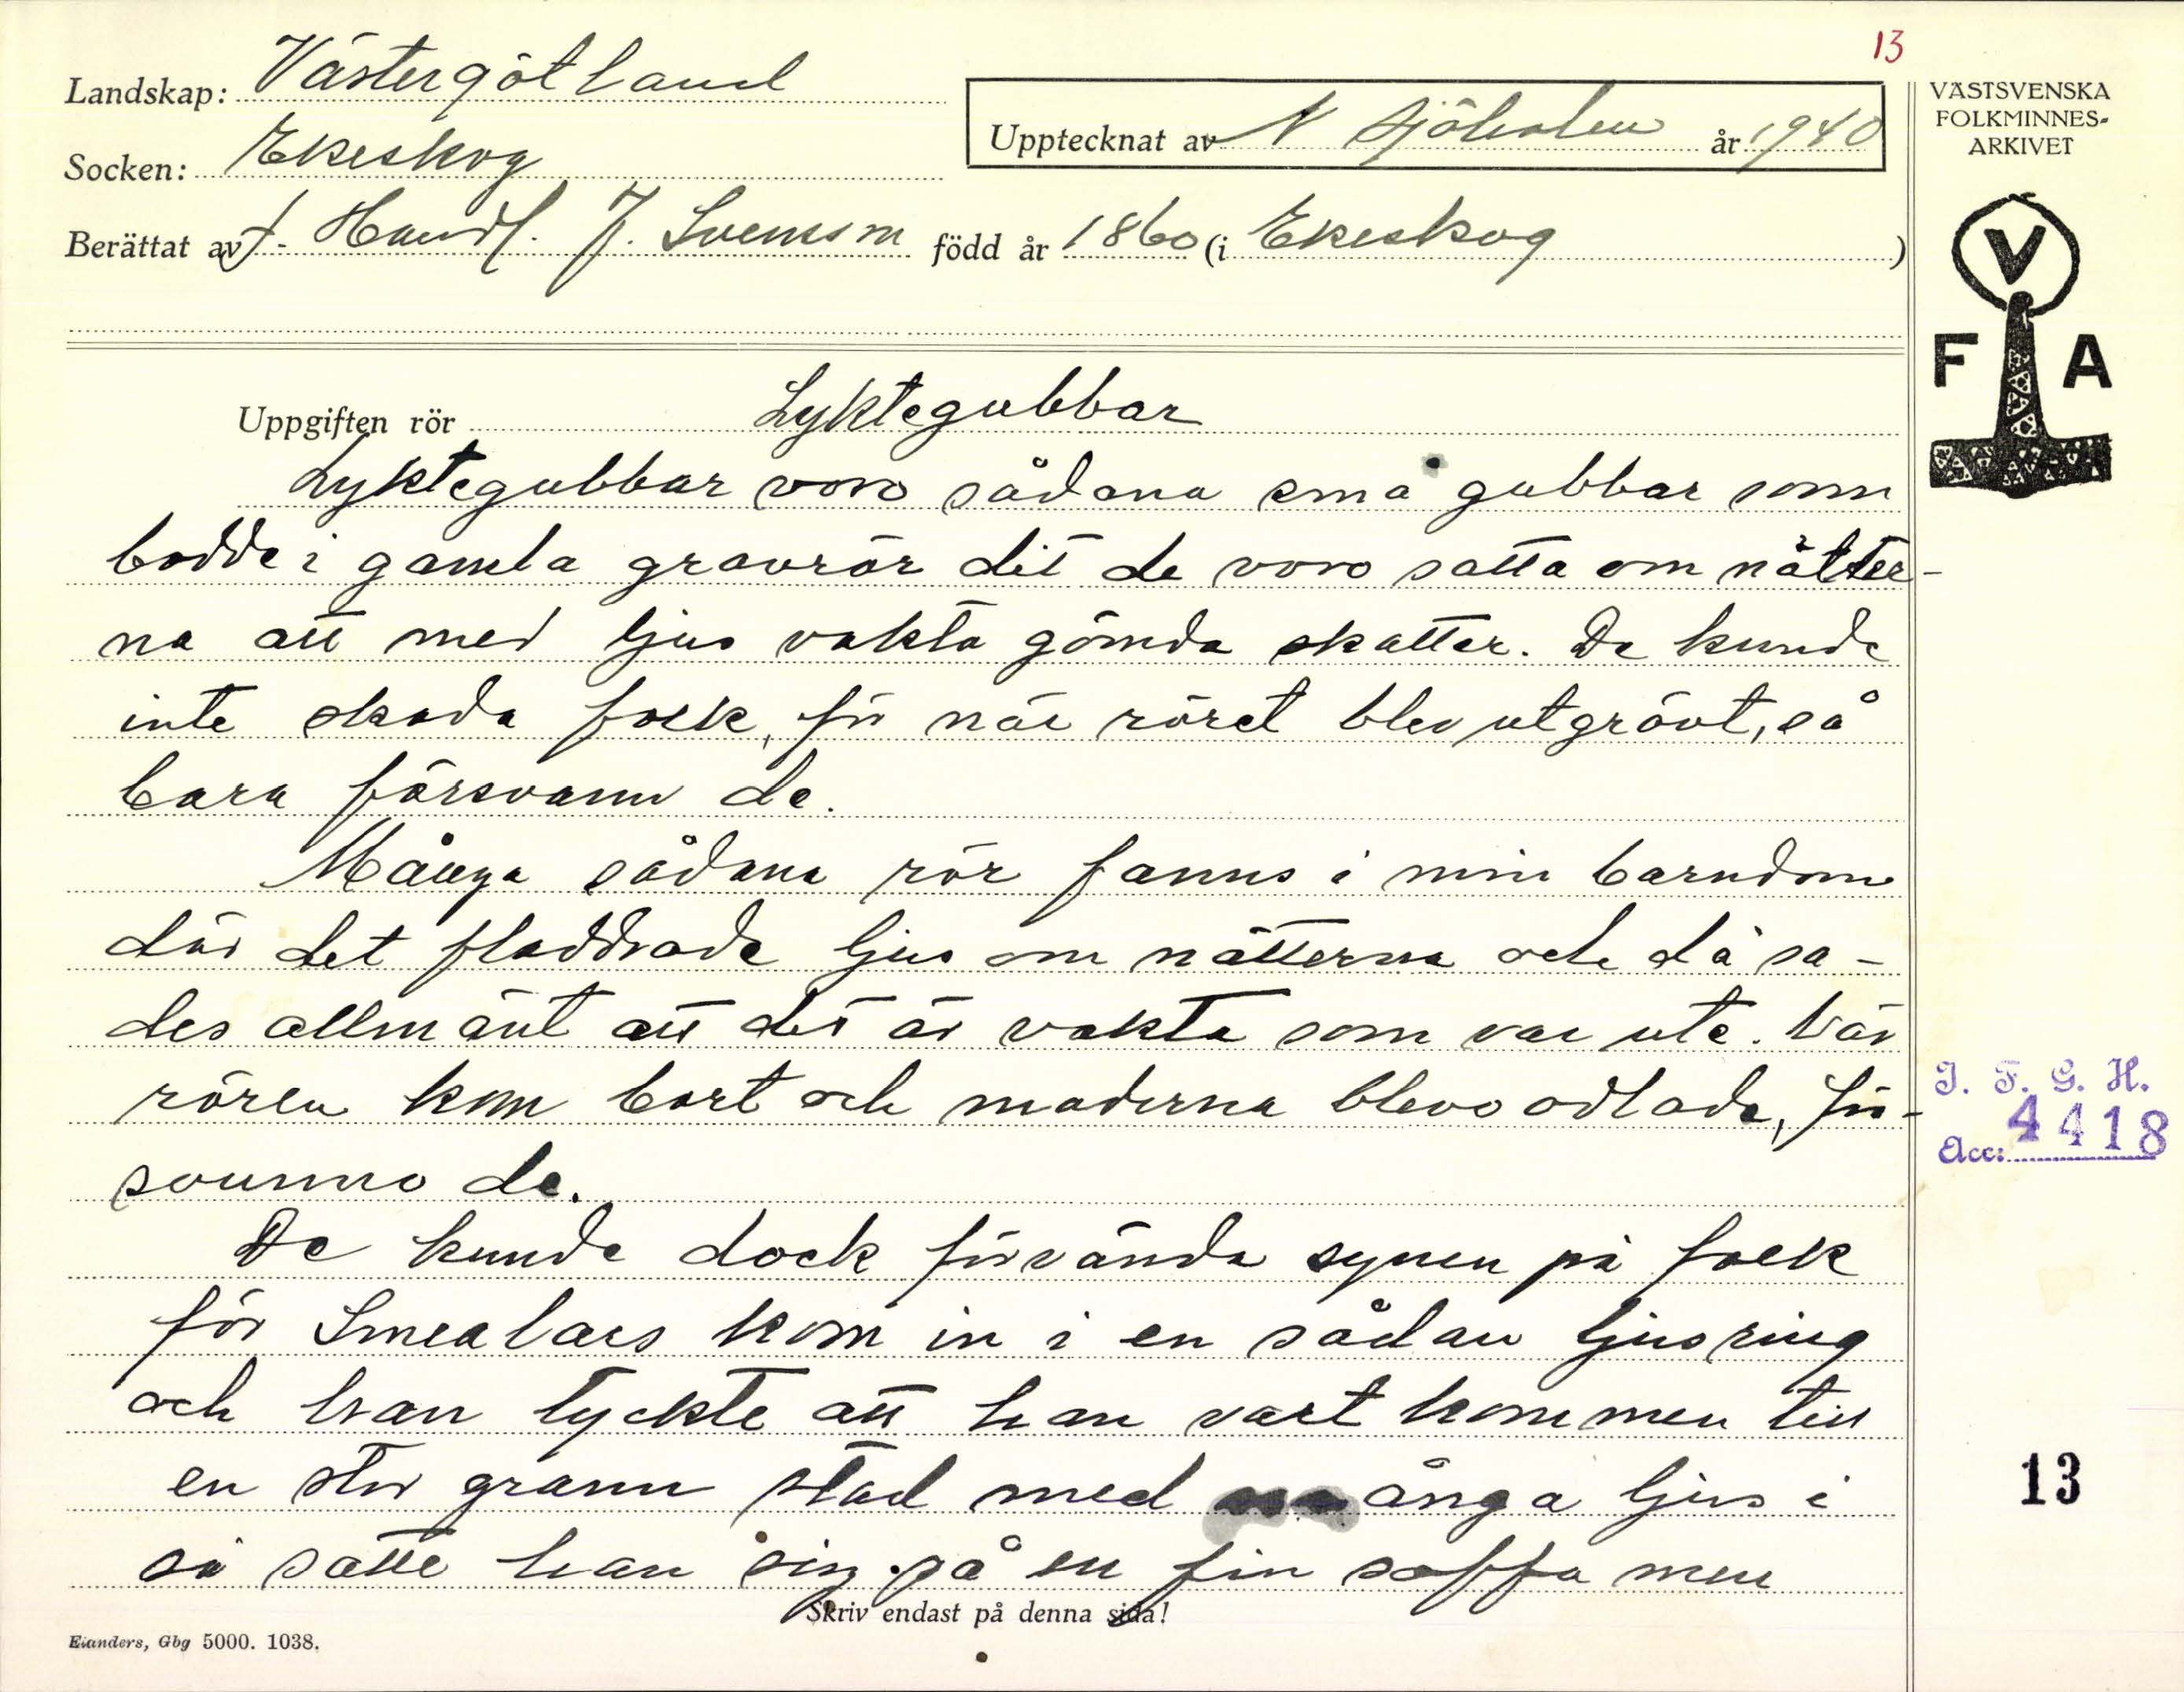 13
Landskap: Västergötland
Upptecknat av N Sjöholm år 1940
Socken: Ekeskog
Berättat av f. Handl. J. Svenson född år 1860 (i Ekeskog)
VÄSTSVENSKA
FOLKMINNES-
ARKIVET
V
F A
Uppgiften rör Lyktegubbar
Lyktegubbar voro sådana små gubbar som
bodde i gamla gravrör dit de voro satta om nätter-
na att med ljus vakta gömda skatter. De kunde
inte skada folk, för när röret blev utgrävt, så
bara försvann de.
Många sådana rör fanns i min barndom
där det fladdrade ljus om nätterna och då sa-
des allmänt att det är vakta som var ute. När
rören kom bort och maderna blevo odlade, för-
svunno de.
De kunde dock förvända synen på folk
för Smealars kom in i en sådan ljusring
och han tyckte att han vart kommen till
en stor grann stad med många ljus i
så satte han sig på en fin soffa men
Skriv endast på denna sida!
Eianders, Gbg 5000. 1038.
I. F. G. H.
Acc: 4418
13